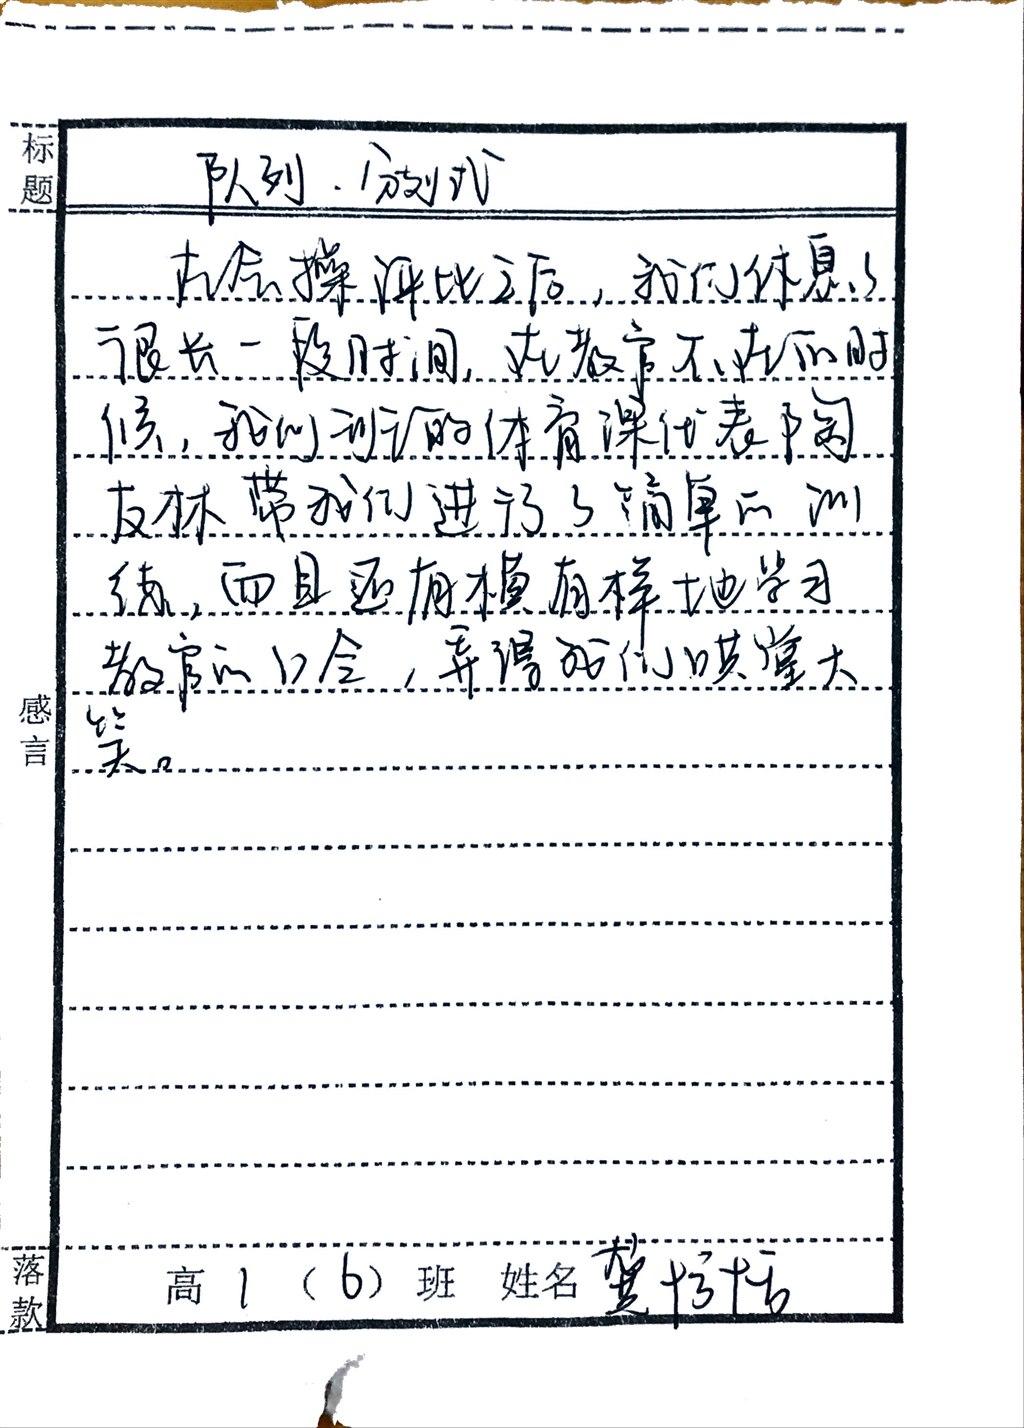 标题
队列.分列式
在会操评比之后，我们休息了
很长一段时间，在教官不在的时
候，我们班的体育课代表陶
友林带我们进行了简单的训
练，而且还有模有样地学习
教官的口令，弄得我们哄堂大
笑。
感言
落款
高1（6）班 姓名 龚